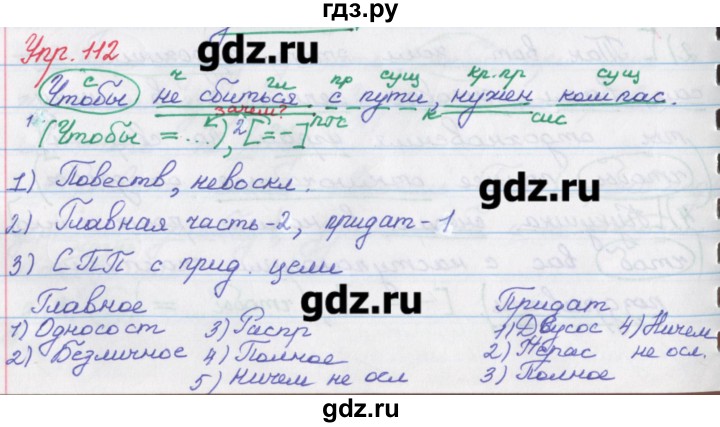 гдз.ру
Упр. 112
gdz.ru
с ч гл пр сущ кр.пр сущ
Чтобы не сбиться с пути, нужен компас.
зачем?
1 (Чтобы = ...), 2 [= -] пос к сис
1) Повеств, невоскл.
gdz.ru
2) Главная часть-2, придат-1
3) СПП с прид. цели
gdz.ru
Главное Придат
1) Односост 3) Распр 1) Двусос 4) Ничем
2) Безличное 4) Полное 2) Нерас не осл.
5) Ничем не осл 3) Полное
gdz.ru